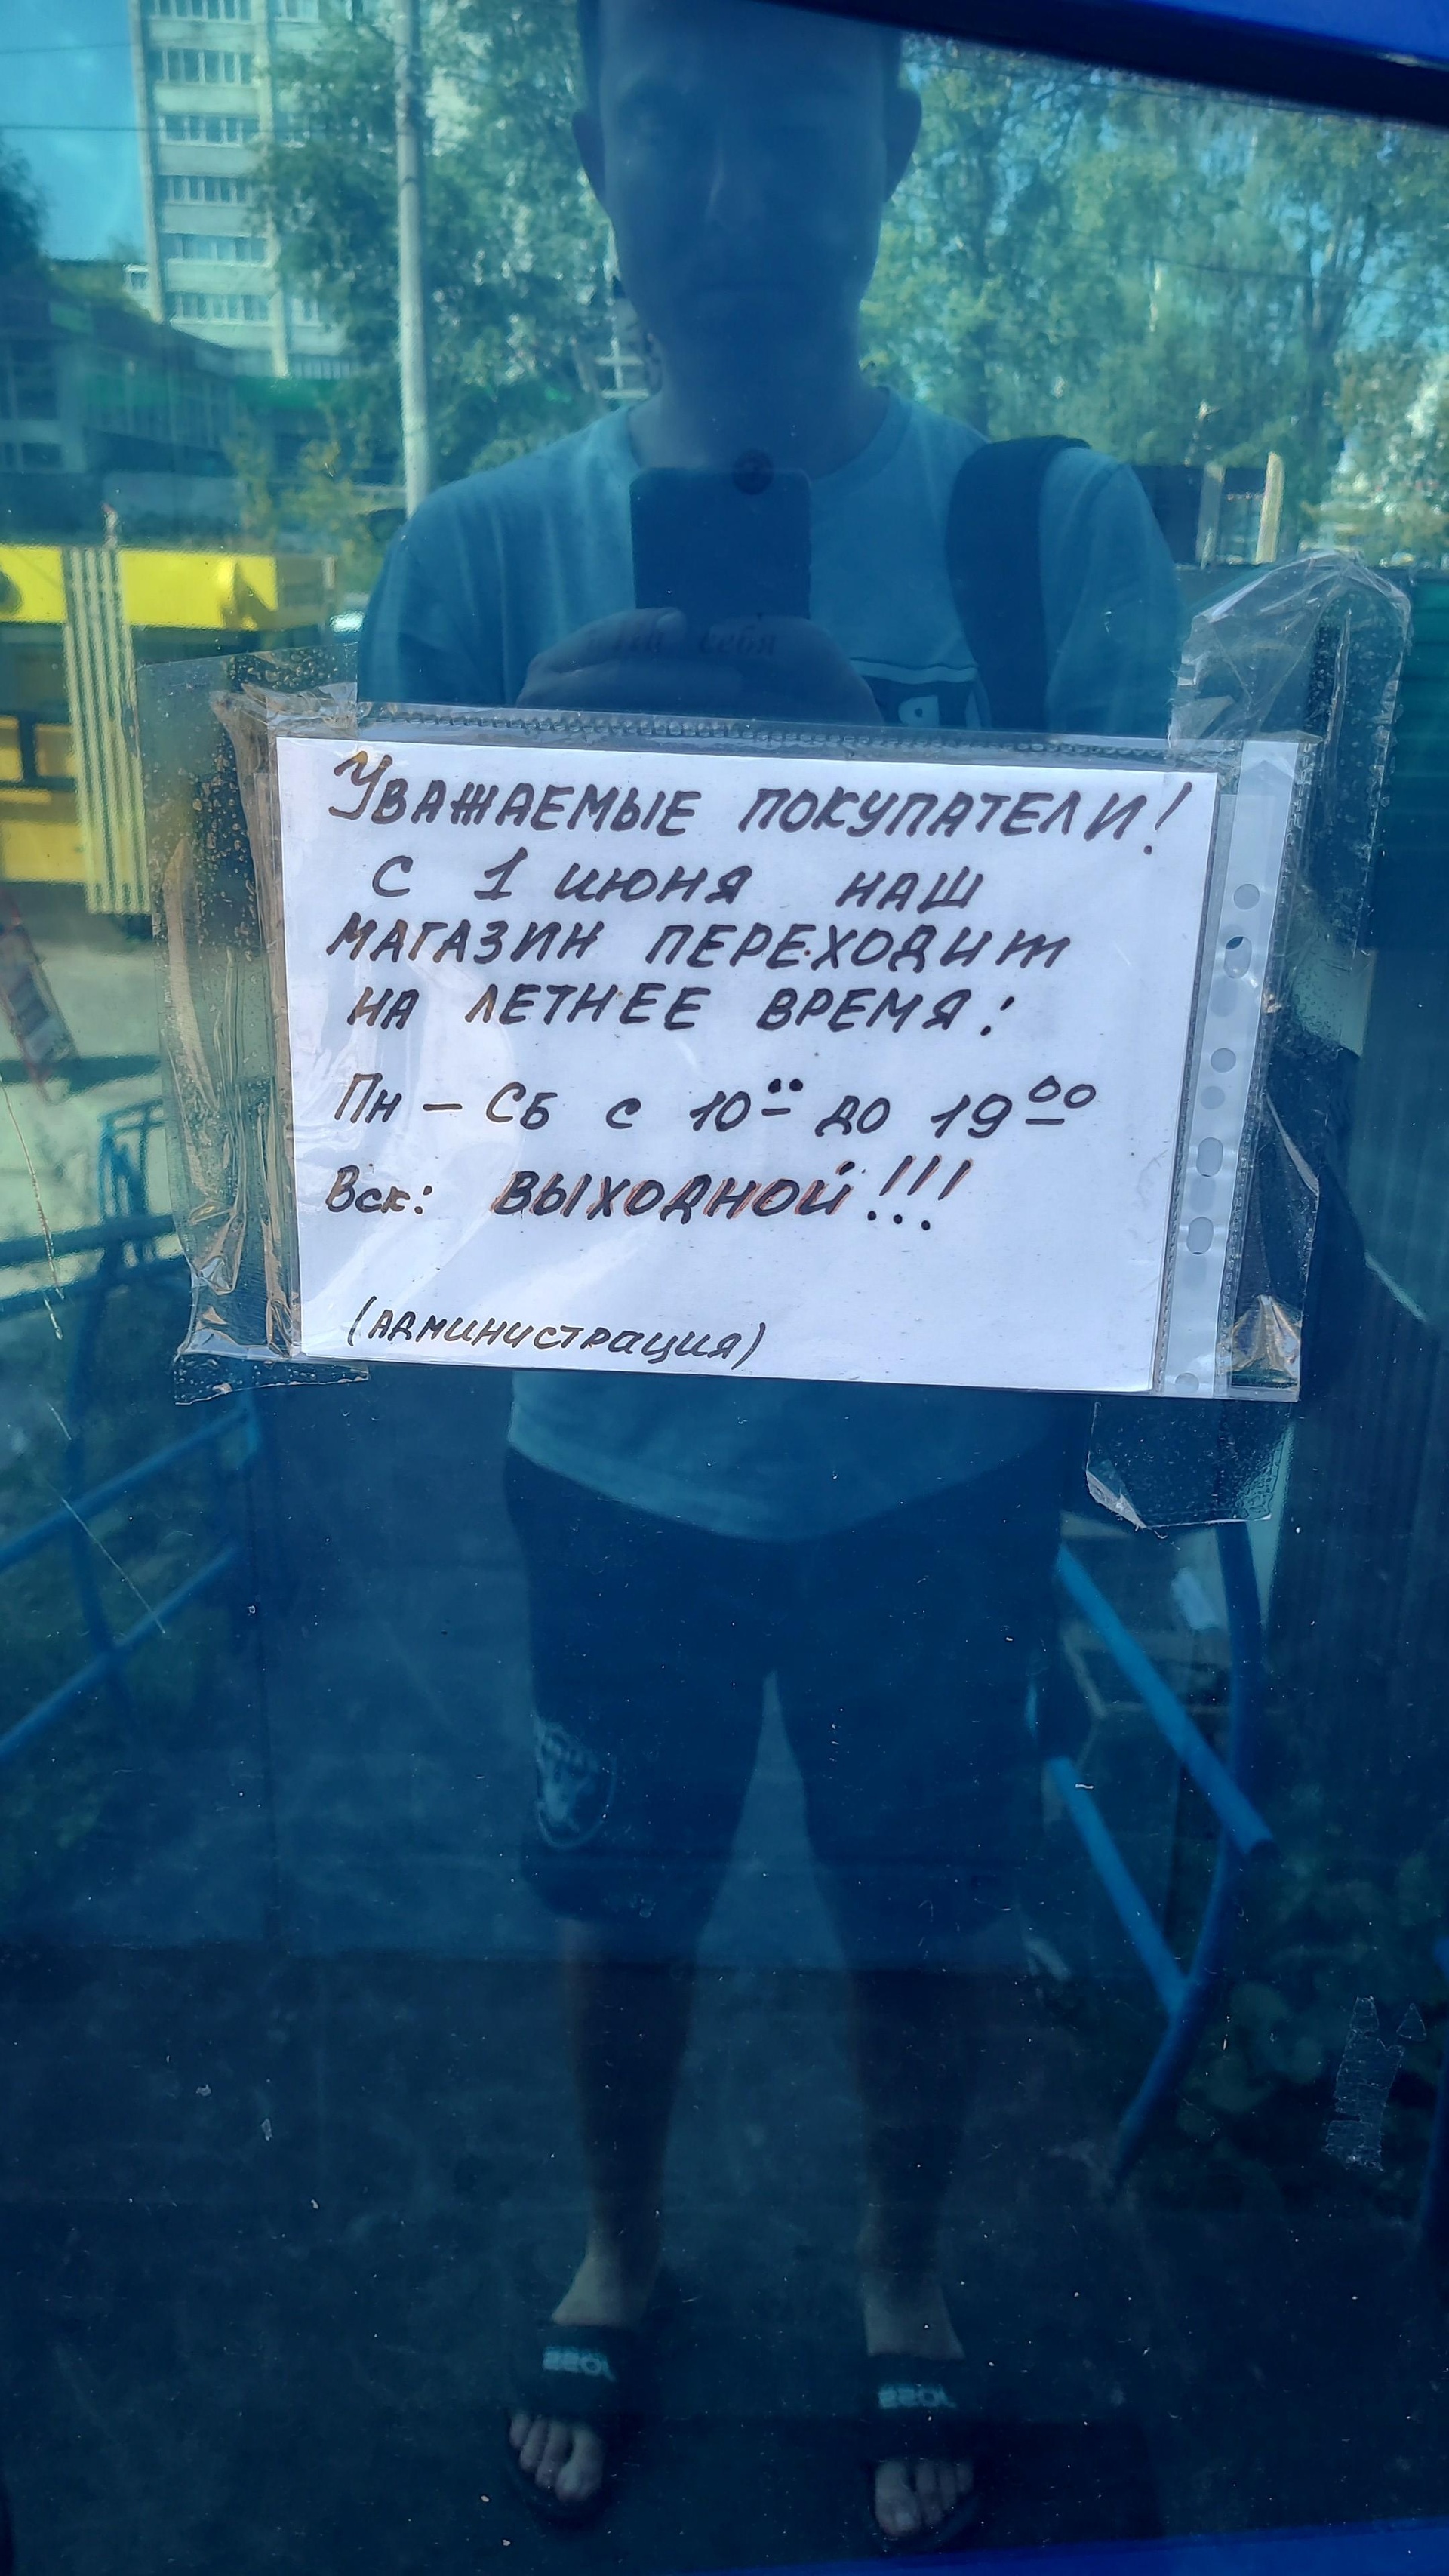 на себя
Уважаемые покупатели!
с 1 июня наш
магазин переходит
на летнее время:
Пн – Сб с 10⁰⁰ до 19⁰⁰
Вск: выходной!!!
(администрация)